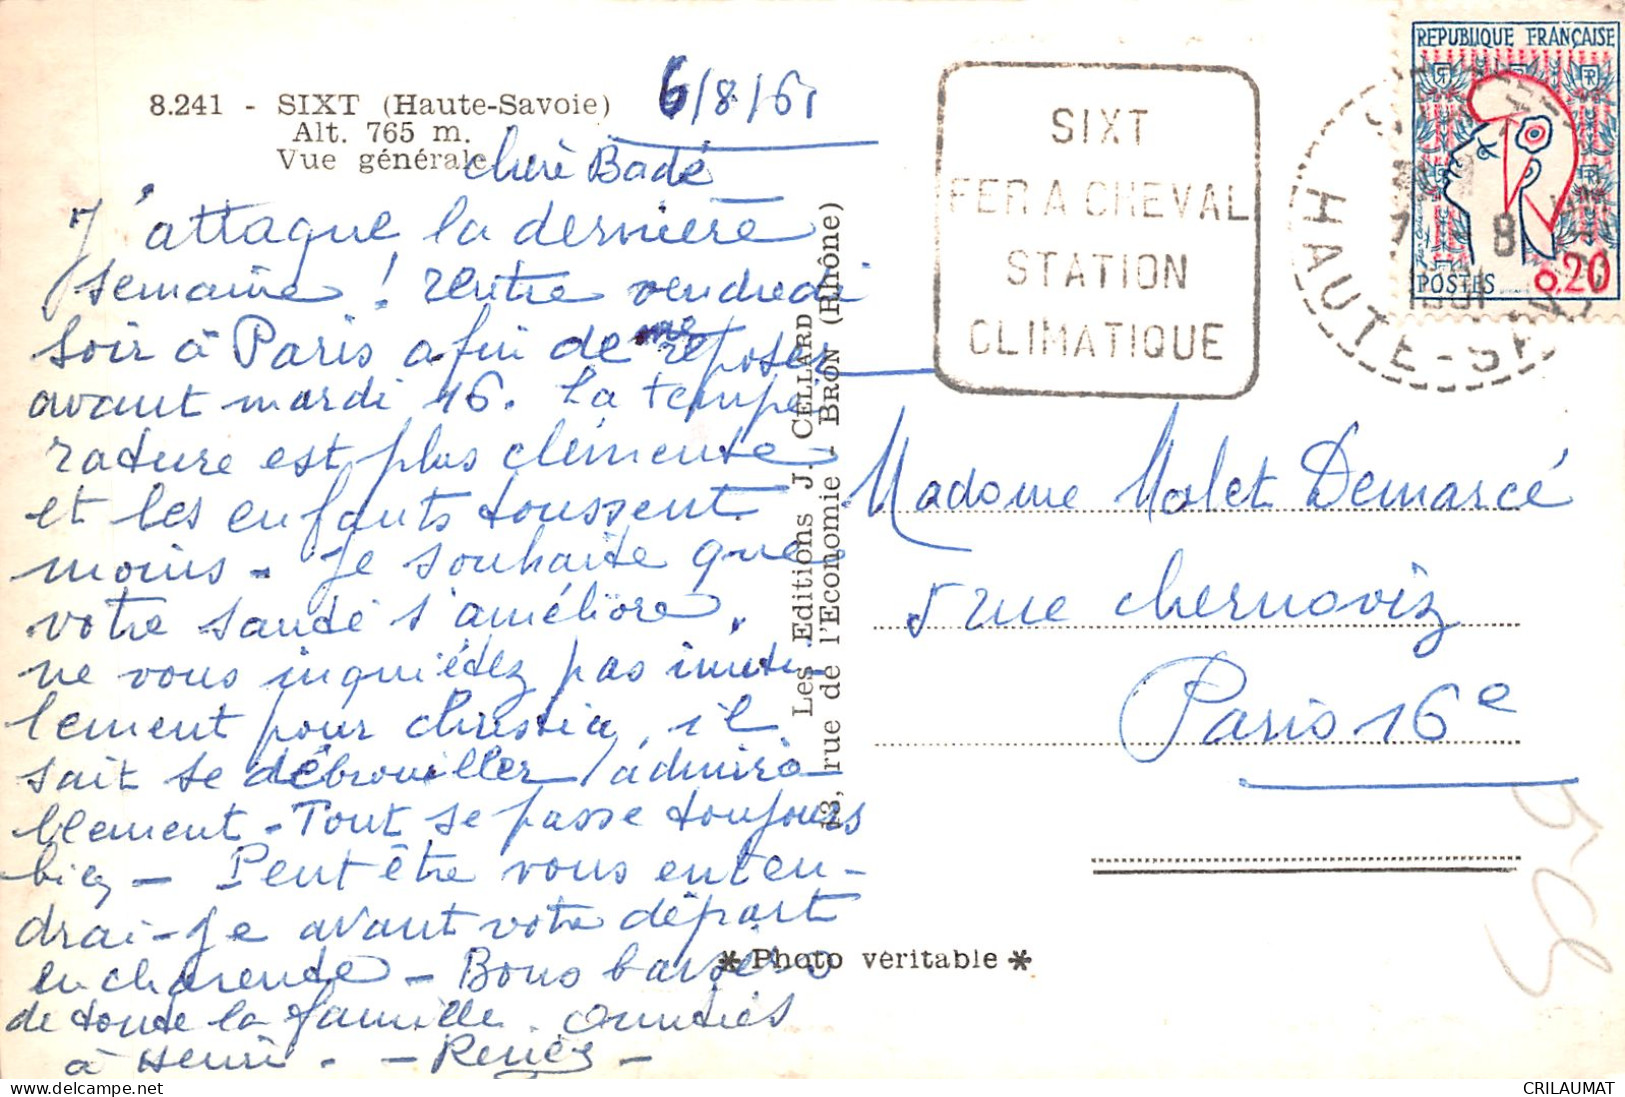 8.241 - SIXT (Haute-Savoie)
Alt. 765 m.
Vue générale
6/8/61
chère Badé
J'attaque la dernière
semaine ! rentre vendredi
soir à Paris afin de me reposer
avant mardi 16. La tempé
rature est plus clémente
et les enfants toussent
moins - Je souhaite que
votre santé s'améliore,
ne vous inquiétez pas inuti-
lement pour christian, il
sait se débrouiller admira-
blement - Tout se passe toujours
bien - Peut être vous enten-
drai-je avant votre départ
en charente - Bons baisers
de toute la famille. Amitiés
à Henri. -
Les Editions J. CELLARD
13, rue de l'ECONOMIE - BRON (Rhône)
SIXT
FER A CHEVAL
STATION
CLIMATIQUE
HAUTE-SAVOIE
7 8
1961
REPUBLIQUE FRANÇAISE
POSTES 0,20
Madame Malet Demarcé
5 rue chernoviz
Paris 16e
* Photo véritable *
CRILAUMAT